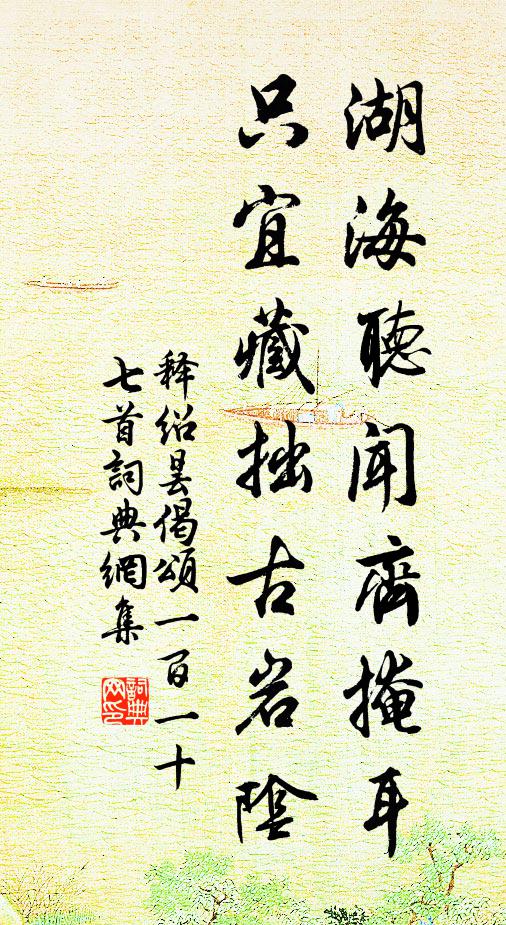 湖海聽聞齊掩耳
只宜藏拙古岩陰
释绍昙偈頌一百一十
七首詞典網集
詞典网印